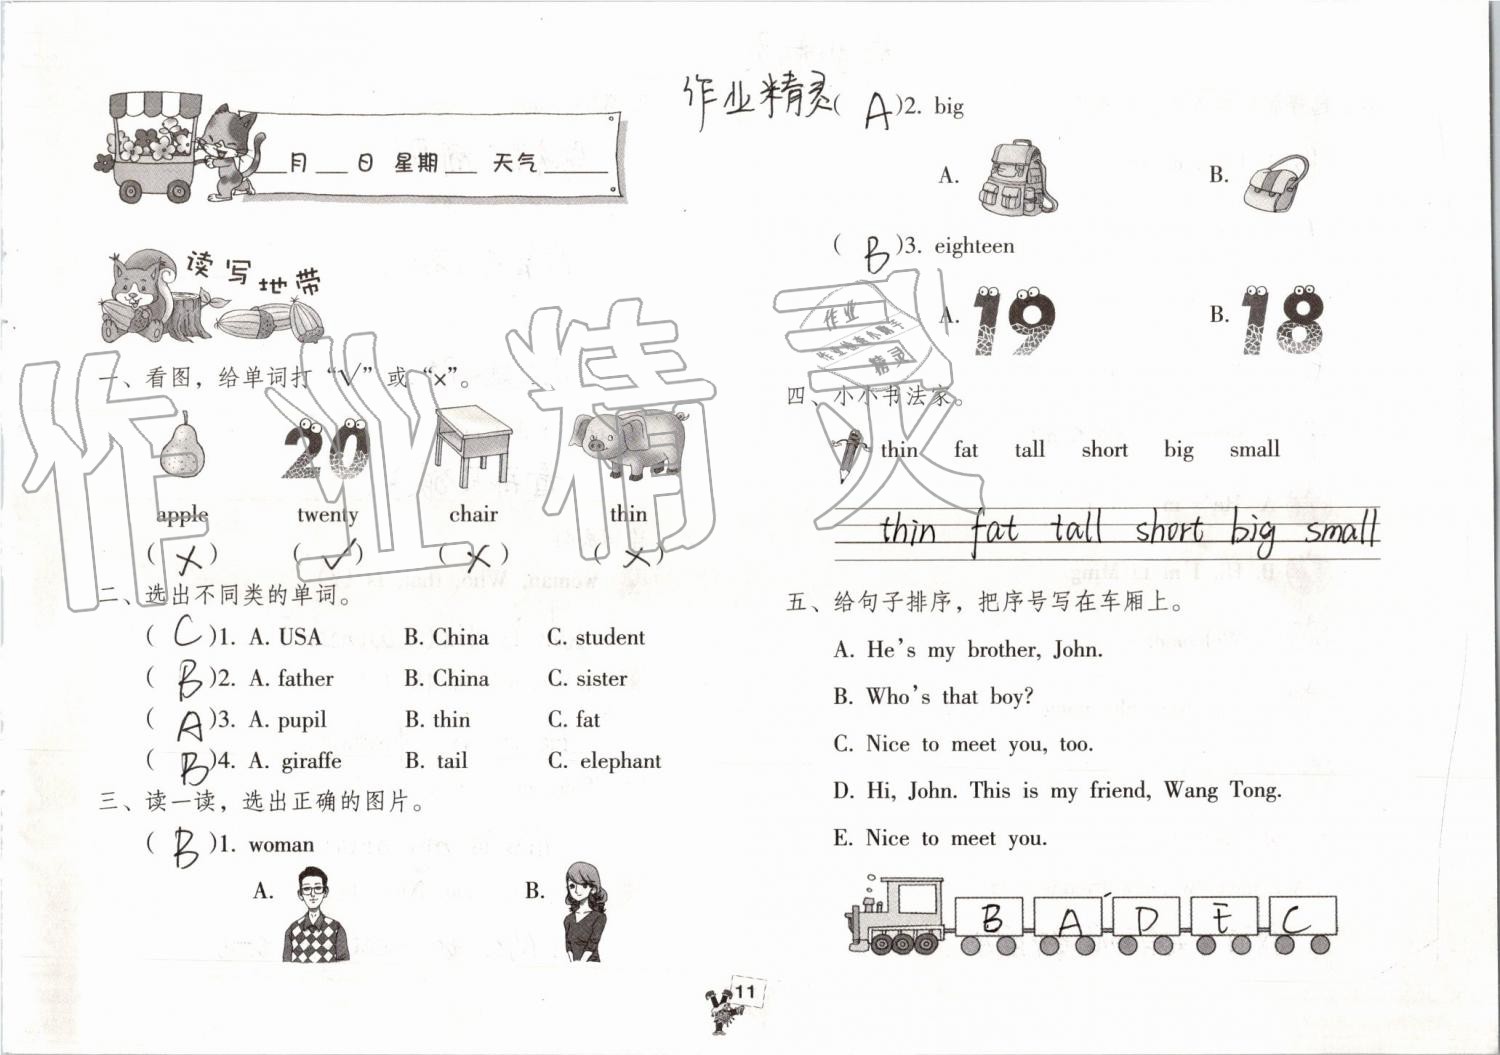 月 日 星期 天气
读写地带
一、看图，给单词打“√”或“×”。
20
apple twenty chair thin
( × ) ( √ ) ( × ) ( × )
二、选出不同类的单词。
( C )1. A. USA B. China C. student
( B )2. A. father B. China C. sister
( A )3. A. pupil B. thin C. fat
( B )4. A. giraffe B. tail C. elephant
三、读一读，选出正确的图片。
( B )1. woman
A. B.
作业精灵
( A )2. big
A. B.
( B )3. eighteen
A. 19 B. 18
四、小小书法家。
thin fat tall short big small
thin fat tall short big small
五、给句子排序，把序号写在车厢上。
A. He's my brother, John.
B. Who's that boy?
C. Nice to meet you, too.
D. Hi, John. This is my friend, Wang Tong.
E. Nice to meet you.
B A D E C
11
作业精灵
作业
精灵